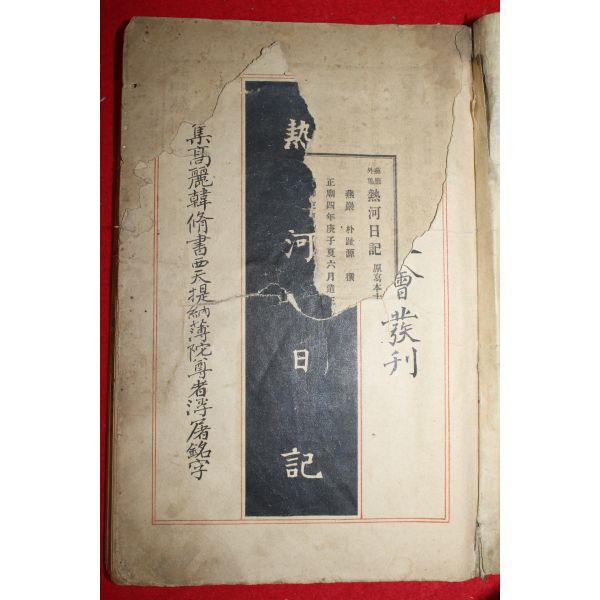 會發刊
燕巖外集 熱河日記 原寫本
燕巖 朴趾源 撰
正廟四年庚子夏六月
熱河日記
集高麗韓脩書西天提納薄陀尊者浮屠銘字